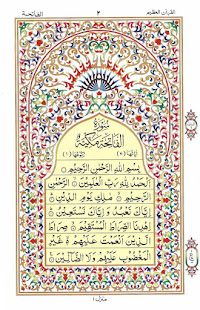 القرآن العظيم ٢ الفاتحة
سُورَةُ
الْفَاتِحَةِ مَكِّيَّةٌ
بِسْمِ اللهِ الرَّحْمٰنِ الرَّحِيْمِ
اَلْحَمْدُ لِلّٰهِ رَبِّ الْعٰلَمِيْنَ ۝ الرَّحْمٰنِ
الرَّحِيْمِ ۝ مٰلِكِ يَوْمِ الدِّيْنِ ۝
اِيَّاكَ نَعْبُدُ وَ اِيَّاكَ نَسْتَعِيْنُ ۝
اِهْدِنَا الصِّرَاطَ الْمُسْتَقِيْمَ ۝ صِرَاطَ
الَّذِيْنَ اَنْعَمْتَ عَلَيْهِمْ ۝ غَيْرِ
الْمَغْضُوْبِ عَلَيْهِمْ وَلَا الضَّآلِّيْنَ ۝
منزل ١